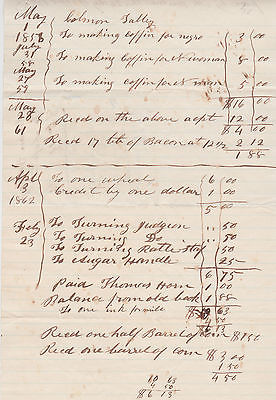 May Colmon Talley
1858 To making coffin for negro 3 00
July 31 58 To making coffin for N woman 8 00
May 27 59 To making coffin for N man 5 00
$16 00
May 28 61 Recd on the above acpt 12 00
$4 00
Recd 17 lbs of Bacon at 12½ 2 12
1 88
Apl 3 1862 To one
Credit by one dollar 1 00
5 00
Feb 23 To Turning Judgeon 50
To Turning Do 50
To Turning 50
To Auger Handle 25
6 75
Paid Thomas Horn 1 00
Balance from old book 1 88
$9 63
To one
Recd one half Barrel of corn $1 50
Recd one barrel of corn $3 00
1 50
4 50
10 63
4 50
$6 13